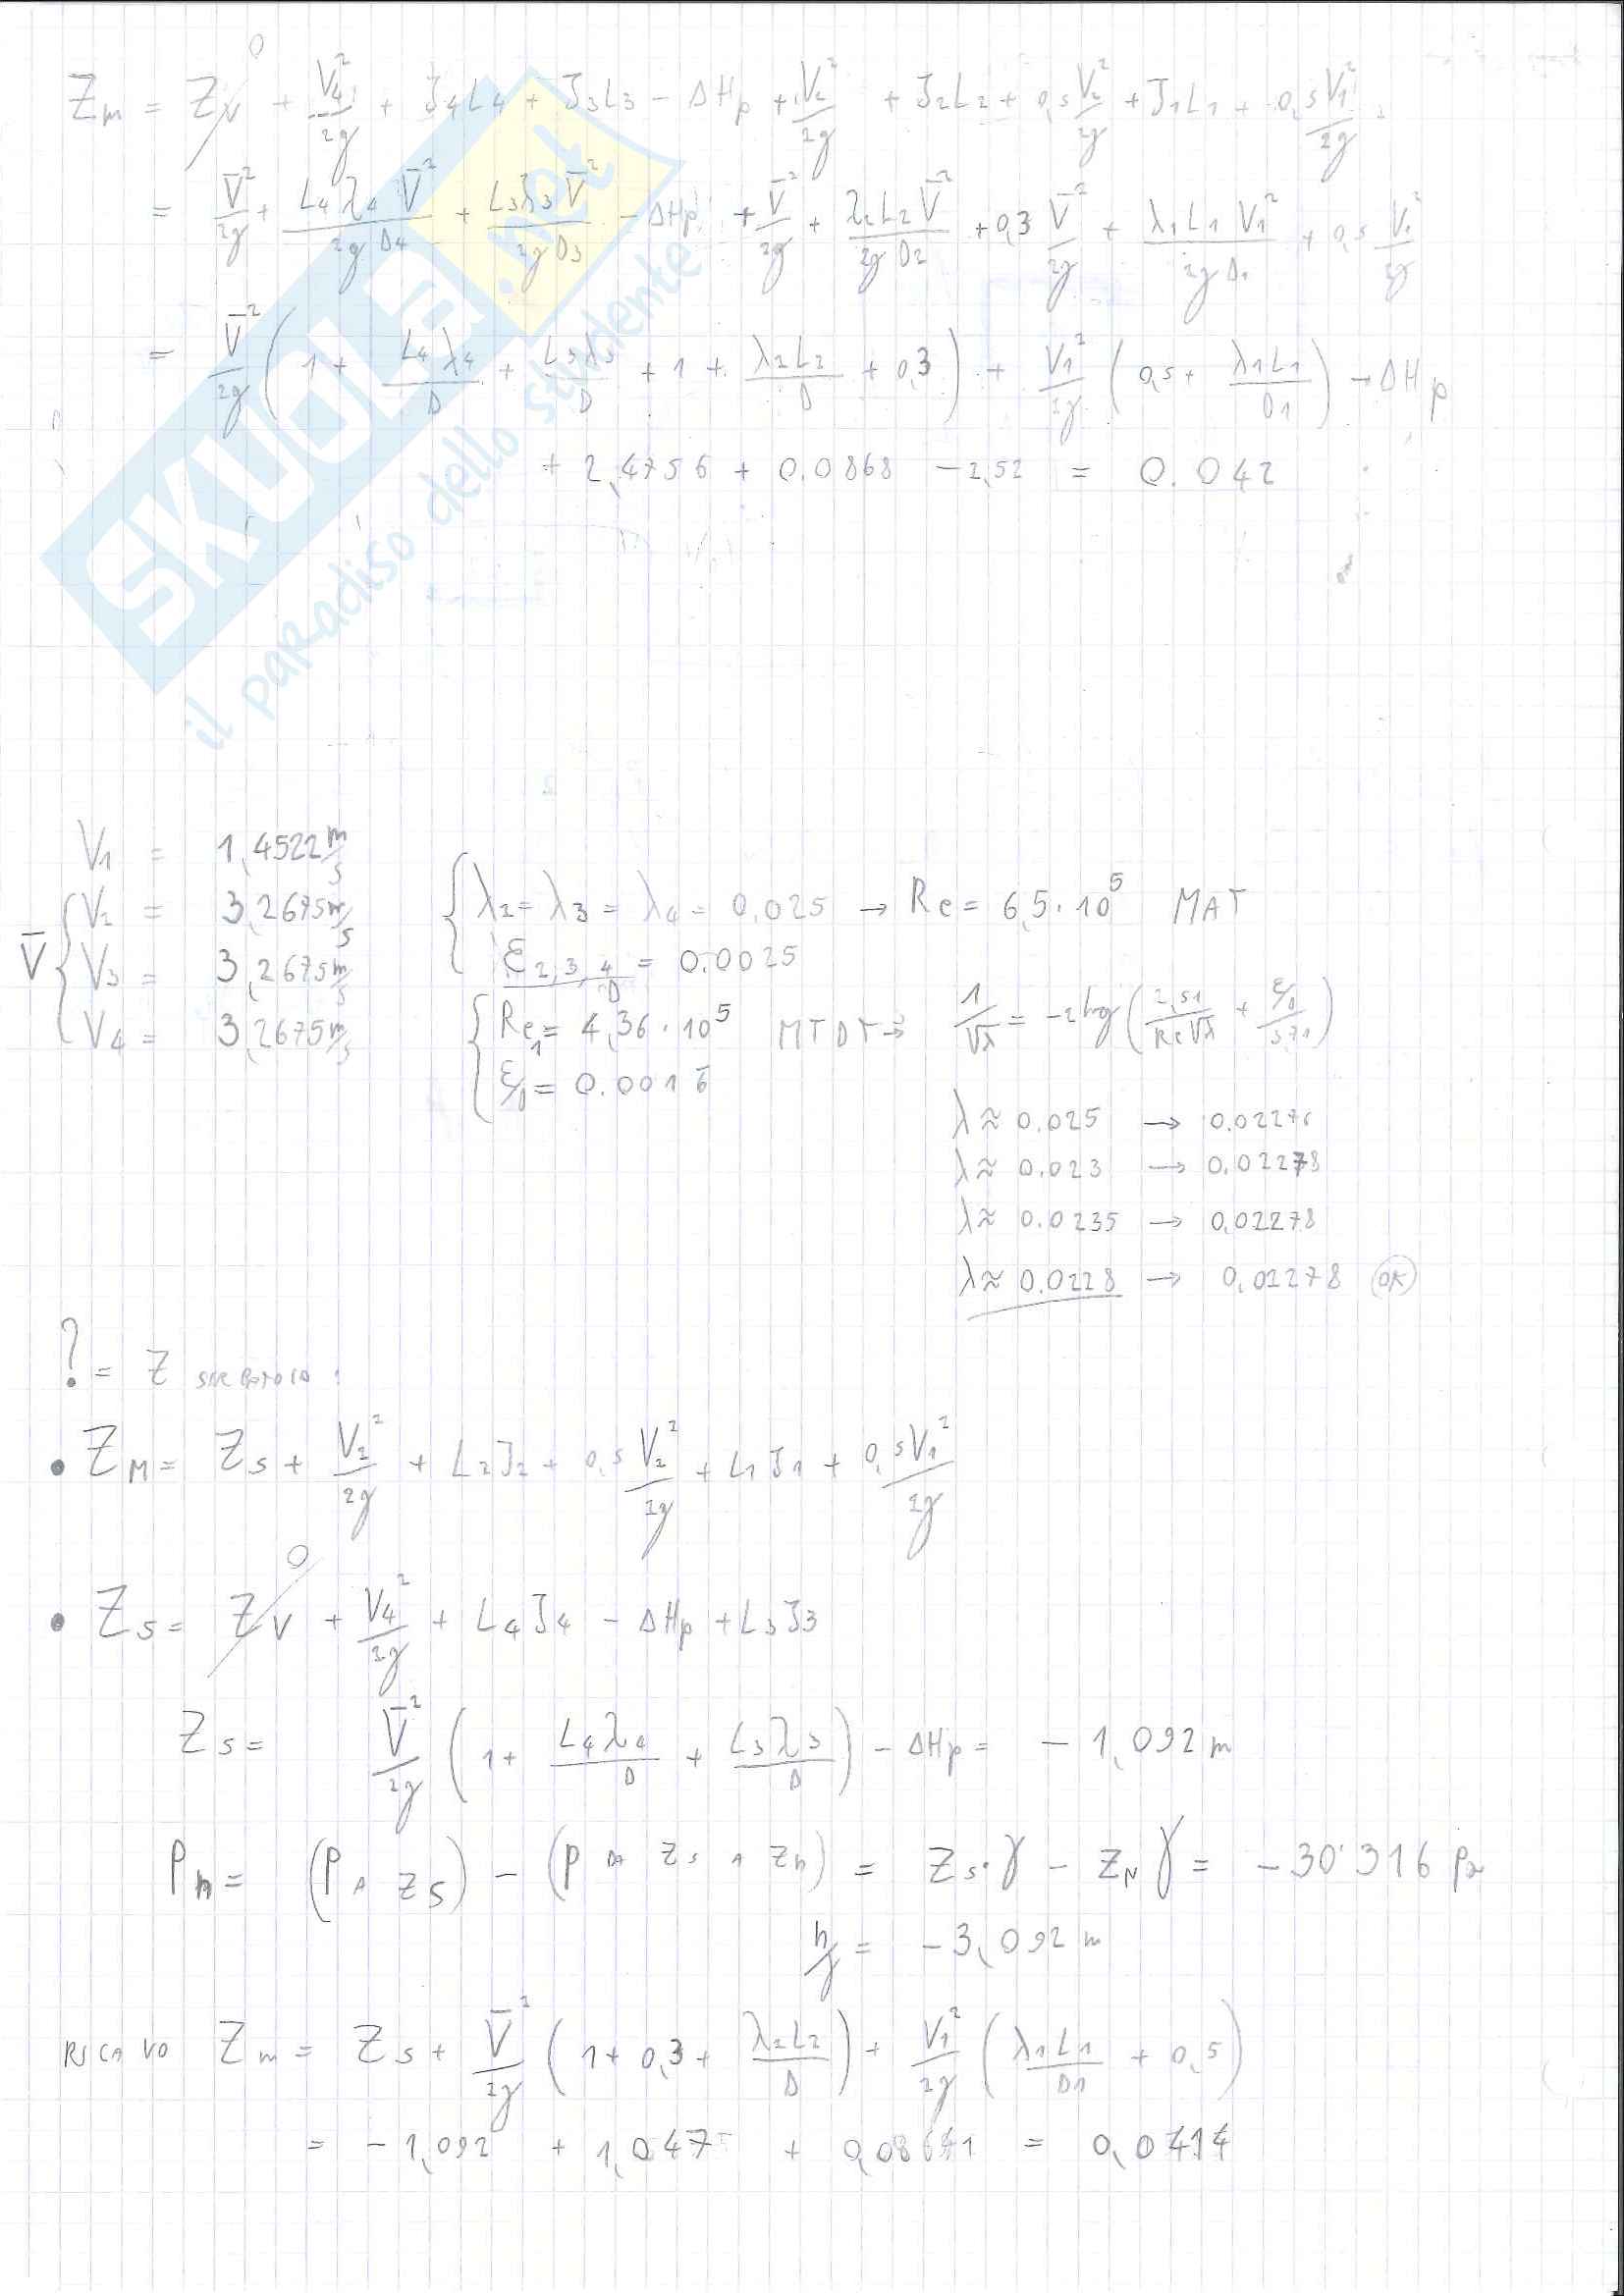 Zm = Zv 0 + V4²/2g + J4L4 + J3L3 - ΔHp + V2²/2g + J2L2 + 0,5 V2²/2g + J1L1 + 0,5 V1²/2g =
= V̄²/2g + L4λ4V̄²/2gD4 + L3λ3V̄²/2gD3 - ΔHp + V̄²/2g + λ2L2V̄²/2gD2 + 0,3 V̄²/2g + λ1L1V1²/2gD1 + 0,5 V1²/2g
= V̄²/2g (1 + L4λ4/D + L3λ3/D + 1 + λ2L2/D + 0,3) + V1²/2g (0,5 + λ1L1/D1) - ΔHp
+ 2,4756 + 0.0868 - 2,52 = 0.042
SKUOLA.net
il paradiso dello studente
V1 = 1,4522 m/s
V̄ { V2 = 3,2675 m/s
V3 = 3,2675 m/s
V4 = 3,2675 m/s
{ λ2 = λ3 = λ4 = 0,025 → Re = 6,5·10⁵ MAT
ε2,3,4/D = 0.0025
{ Re1 = 4,36·10⁵ MTDT → 1/√λ = -2 log (2,51/Re√λ + ε/D/3,71)
ε/D = 0.0016
λ ≈ 0.025 → 0.02276
λ ≈ 0.023 → 0,02278
λ ≈ 0.0235 → 0,02278
λ ≈ 0.0228 → 0,02278 OK
? = Z SERBATOIO :
• ZM = Zs + V2²/2g + L2J2 + 0,5 V2²/2g + L1J1 + 0,5V1²/2g
• Zs = Zv 0 + V4²/2g + L4J4 - ΔHp + L3J3
Zs = V̄²/2g (1 + L4λ4/D + L3λ3/D) - ΔHp = - 1,092 m
Pn = (P A ZS) - (P DA ZS A Zn) = Zs·γ - ZN γ = -30'316 Pa
h/γ = - 3,092 m
RICAVO Zm = Zs + V̄²/2g (1 + 0,3 + λ2L2/D) + V1²/2g (λ1L1/D1 + 0,5)
= - 1,092 + 1,047 + 0,08641 = 0,0414